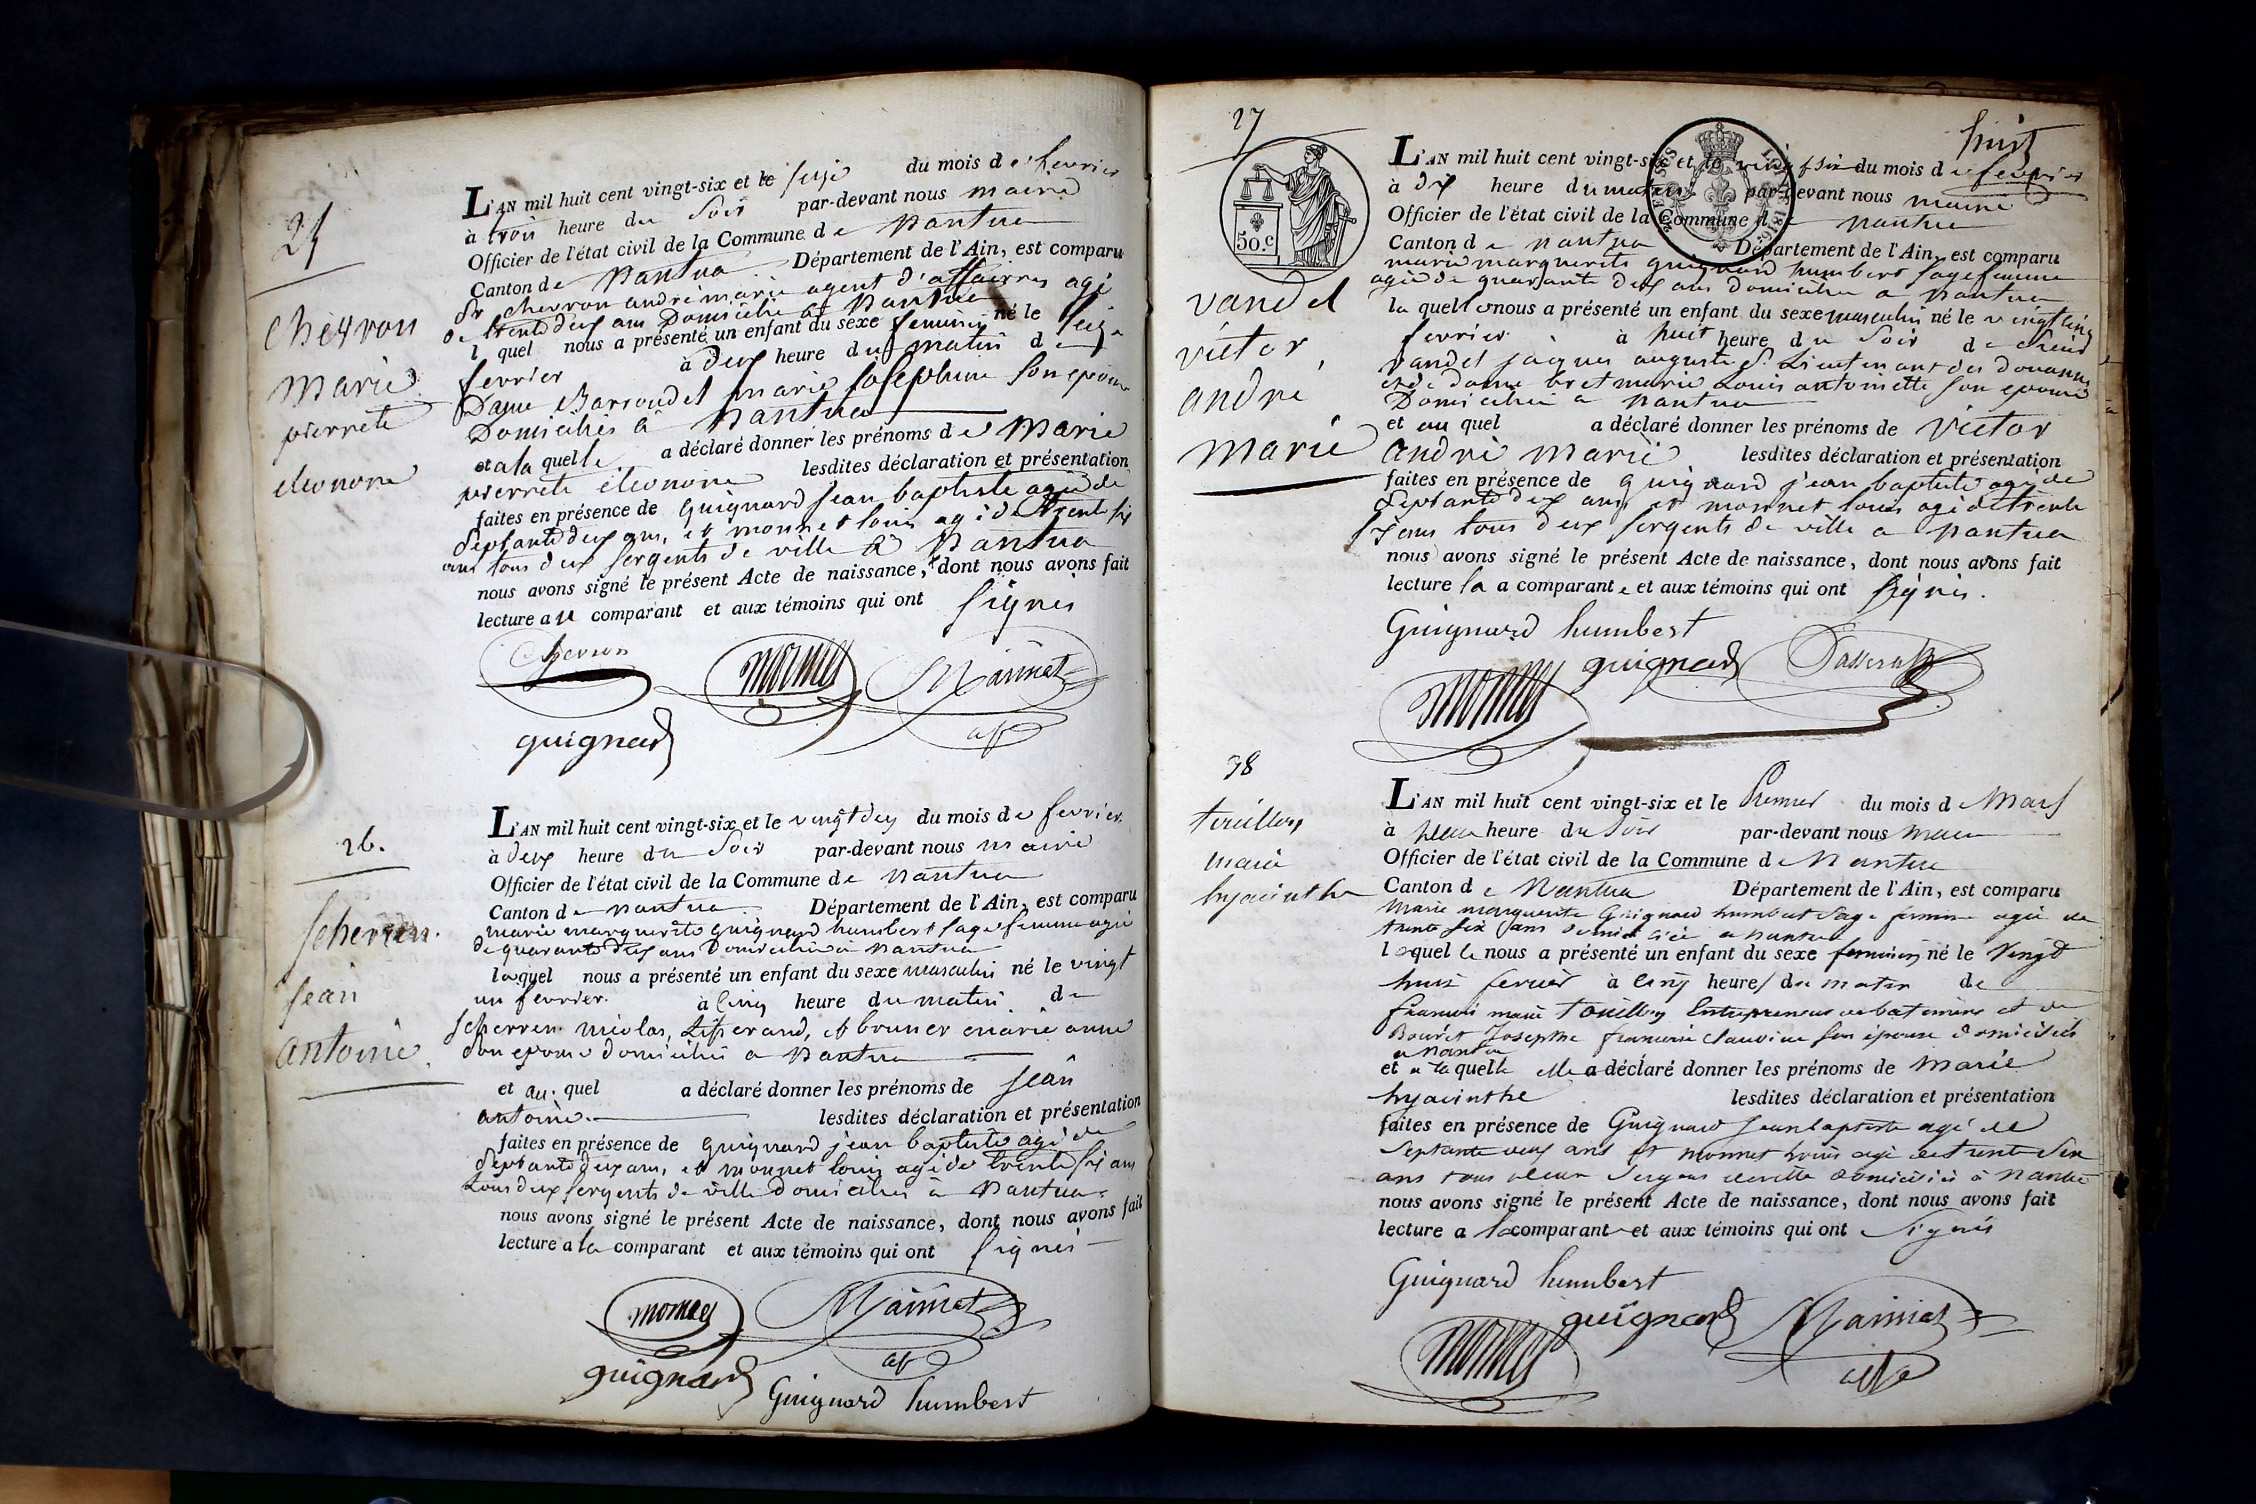 25
Chevron
Marie
pierrete
eleonore
L'AN mil huit cent vingt-six et le seize du mois de fevrier
à trois heure du Soir par-devant nous maire
Officier de l'état civil de la Commune de Nantua
Canton de Nantua Département de l'Ain, est comparu
Sr chevron andré marie agent d'affairres agé
de trente deux ans Domicilié à Nantua
l quel nous a présenté un enfant du sexe feminin né le seize
fevrier à deux heure du matin de
Dame Barroudet marie Josephine son epouse
Domiciliés à Nantua
et a la quelle a déclaré donner les prénoms de Marie
pierrete éleonore lesdites déclaration et présentation
faites en présence de Guignard jean baptiste agé de
septante deux ans, et monnet louis agé de trente six
ans tous deux sergents de ville à Nantua
nous avons signé le présent Acte de naissance, dont nous avons fait
lecture au comparant et aux témoins qui ont signés
Chevron
monnet
Mainet
guignard
26.
scherren.
jean
antoine.
L'AN mil huit cent vingt-six et le vingt deux du mois de fevrier.
à deux heure du Soir par-devant nous maire
Officier de l'état civil de la Commune de Nantua
Canton de Nantua Département de l'Ain, est comparu
marie marguerite guignard humbert sage femme agée
de quarante deux ans domiciliée à Nantua
laquel nous a présenté un enfant du sexe masculin né le vingt
un fevrier. à cinq heure du matin de
scherren nicolas, tisserand, et bruner marie anne
son epouse domiciliés a Nantua
et au quel a déclaré donner les prénoms de jean
antoine. lesdites déclaration et présentation
faites en présence de guignard jean baptiste agé de
septante deux ans, et monnet louis agé de trente six ans
tous deux sergents de ville domiciliés à Nantua
nous avons signé le présent Acte de naissance, dont nous avons fait
lecture a la comparant et aux témoins qui ont signés
monnet
Mainet
guignard
Guignard humbert
27
huit
50.c
vandel
victor
andré
marie
L'AN mil huit cent vingt-six et le vingt six du mois de fevrier
à dix heure du matin par-devant nous maire
Officier de l'état civil de la Commune de Nantua
Canton de Nantua Département de l'Ain, est comparu
marie marguerite guignard humbert sage femme
agée de quarante deux ans domiciliée a Nantua
la quelle nous a présenté un enfant du sexe masculin né le vingt cinq
fevrier à huit heure du Soir de
vandel jacques auguste Sr. Lieutenant des douannes
et de dame bret marie Louis antoinette son epouse
Domiciliés a Nantua
et au quel a déclaré donner les prénoms de victor
andré marie lesdites déclaration et présentation
faites en présence de guignard jean baptiste agé de
septante deux ans et monnet louis agé de trente
six ans tous deux sergents de ville a Nantua
nous avons signé le présent Acte de naissance, dont nous avons fait
lecture la a comparante et aux témoins qui ont signés.
Guignard humbert
guignard
monnet
38
touillon
marie
hyacinthe
L'AN mil huit cent vingt-six et le Premier du mois de Mars
à heure du Soir par-devant nous maire
Officier de l'état civil de la Commune de Nantua
Canton de Nantua Département de l'Ain, est comparu
Marie marguerite Guignard humbert Sage femme agée de
trente six ans domiciliée a nantua
laquelle nous a présenté un enfant du sexe feminin né le Vingt
huit fevrier à cinq heures du matin de
francois marie touillon Entrepreneur de batiments et de
Josephte francoise Claudine son épouse domiciliés
a nantua
et a la quelle elle a déclaré donner les prénoms de marie
hyacinthe lesdites déclaration et présentation
faites en présence de Guignard jean baptiste agé de
Septante deux ans et monnet louis agé de trente six
ans tous deux Sergens de ville domiciliés à Nantua
nous avons signé le présent Acte de naissance, dont nous avons fait
lecture a la comparante et aux témoins qui ont signés
Guignard humbert
guignard
Mainet
monnet